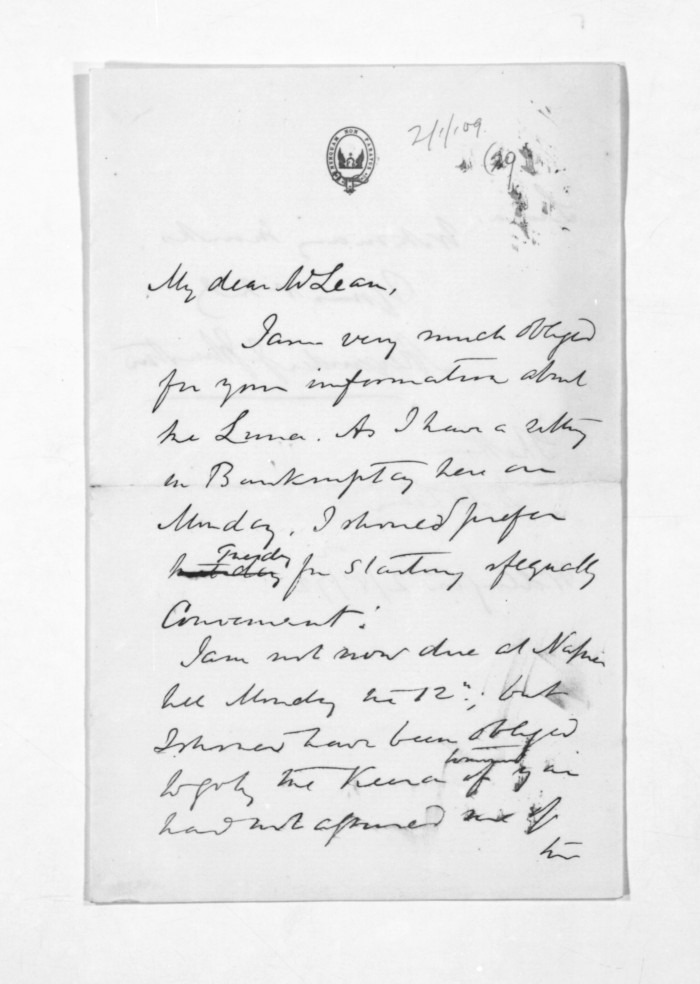 2/1/09.
(29)
NON PARATUS
My dear McLean,
I am very much obliged
for your information about
the Luna. As I have a sitting
in Bankruptcy here on
Monday, I should prefer
Tuesday for starting if equally
Convenient.
I am not now due at Napier
till Monday the 12th; but
I should have been obliged
to go by the Keera tomorrow if you
had not assured me of
the